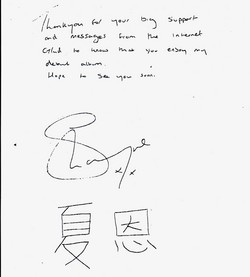 Thankyou for your big support
and messages from the internet
Glad to know that you enjoy my
debut album.
Hope to see you soon.
Shayne
x/x
夏恩